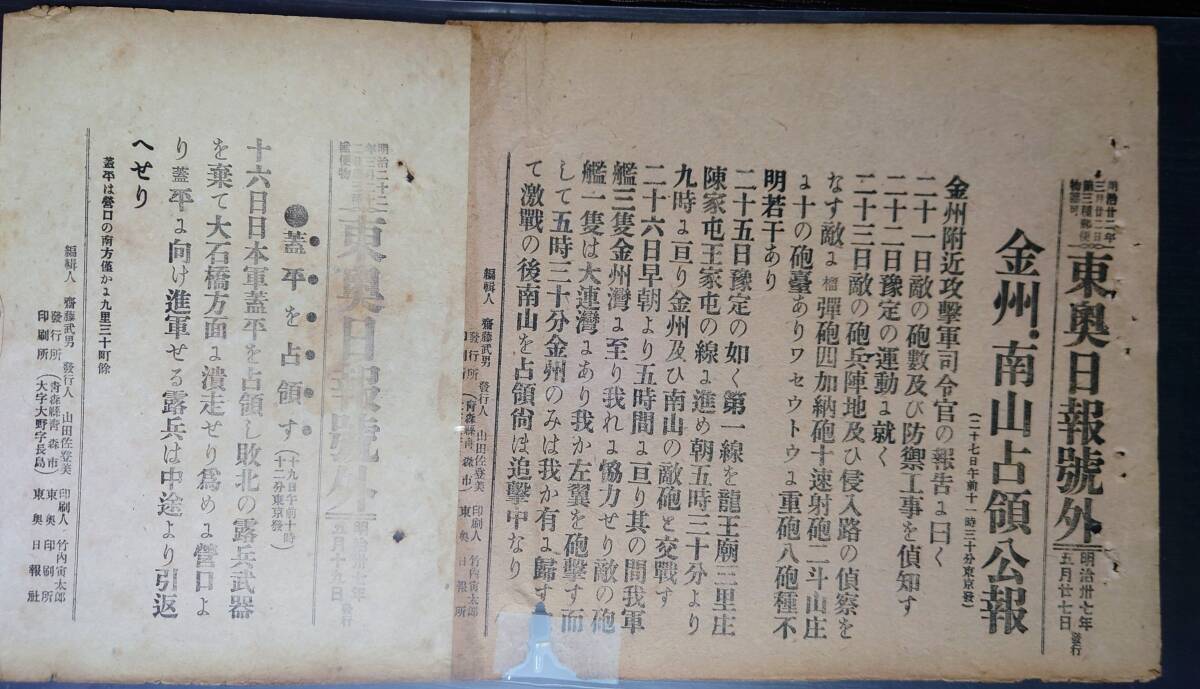 明治廿二年
三月廿二日
第三種郵便
物認可
東奧日報號外
明治卅七年
五月廿七日
發行
金州、南山占領公報
(二十七日午前十一時三十分東京發)
金州附近攻擊軍司令官の報告に曰く
二十一日敵の砲數及び防禦工事を偵知す
二十二日豫定の運動に就く
二十三日敵の砲兵陣地及ひ侵入路の偵察を
なす敵に榴彈砲四加納砲十速射砲二斗山庄
に十の砲臺ありワセウトウに重砲八砲種不
明若干あり
二十五日豫定の如く第一線を龍王廟三里庄
陳家屯王家屯の線に進め朝五時三十分より
九時に亘り金州及ひ南山の敵砲と交戰す
二十六日早朝より五時間に亘り其の間我軍
艦三隻金州灣に至り我れに恊力せり敵の砲
艦一隻は大連灣にあり我か左翼を砲擊す而
して五時三十分金州のみは我か有に歸す
て激戰の後南山を占領尙ほ追擊中なり
編輯人 齋藤武男 發行人 山田佐登美 印刷人 竹內寅太郎
發行所 (靑森縣靑森市) 東奧日報所
明治二十二
年三月二十
郵便物
東奧日報號外
明治卅七年
五月十九日
發行
●蓋平を占領す
(十九日午前十時
十二分東京發)
十六日日本軍蓋平を占領し敗北の露兵武器
を棄て大石橋方面に潰走せり爲めに營口よ
り蓋平に向け進軍せる露兵は中途より引返
へせり
蓋平は營口の南方僅かに九里三十町餘
編輯人 齋藤武男 發行人 山田佐登美 印刷人 竹內寅太郎
發行所 (靑森縣靑森市) 東奧日報社
印刷所 (大字大野字長島) 東奧印刷所